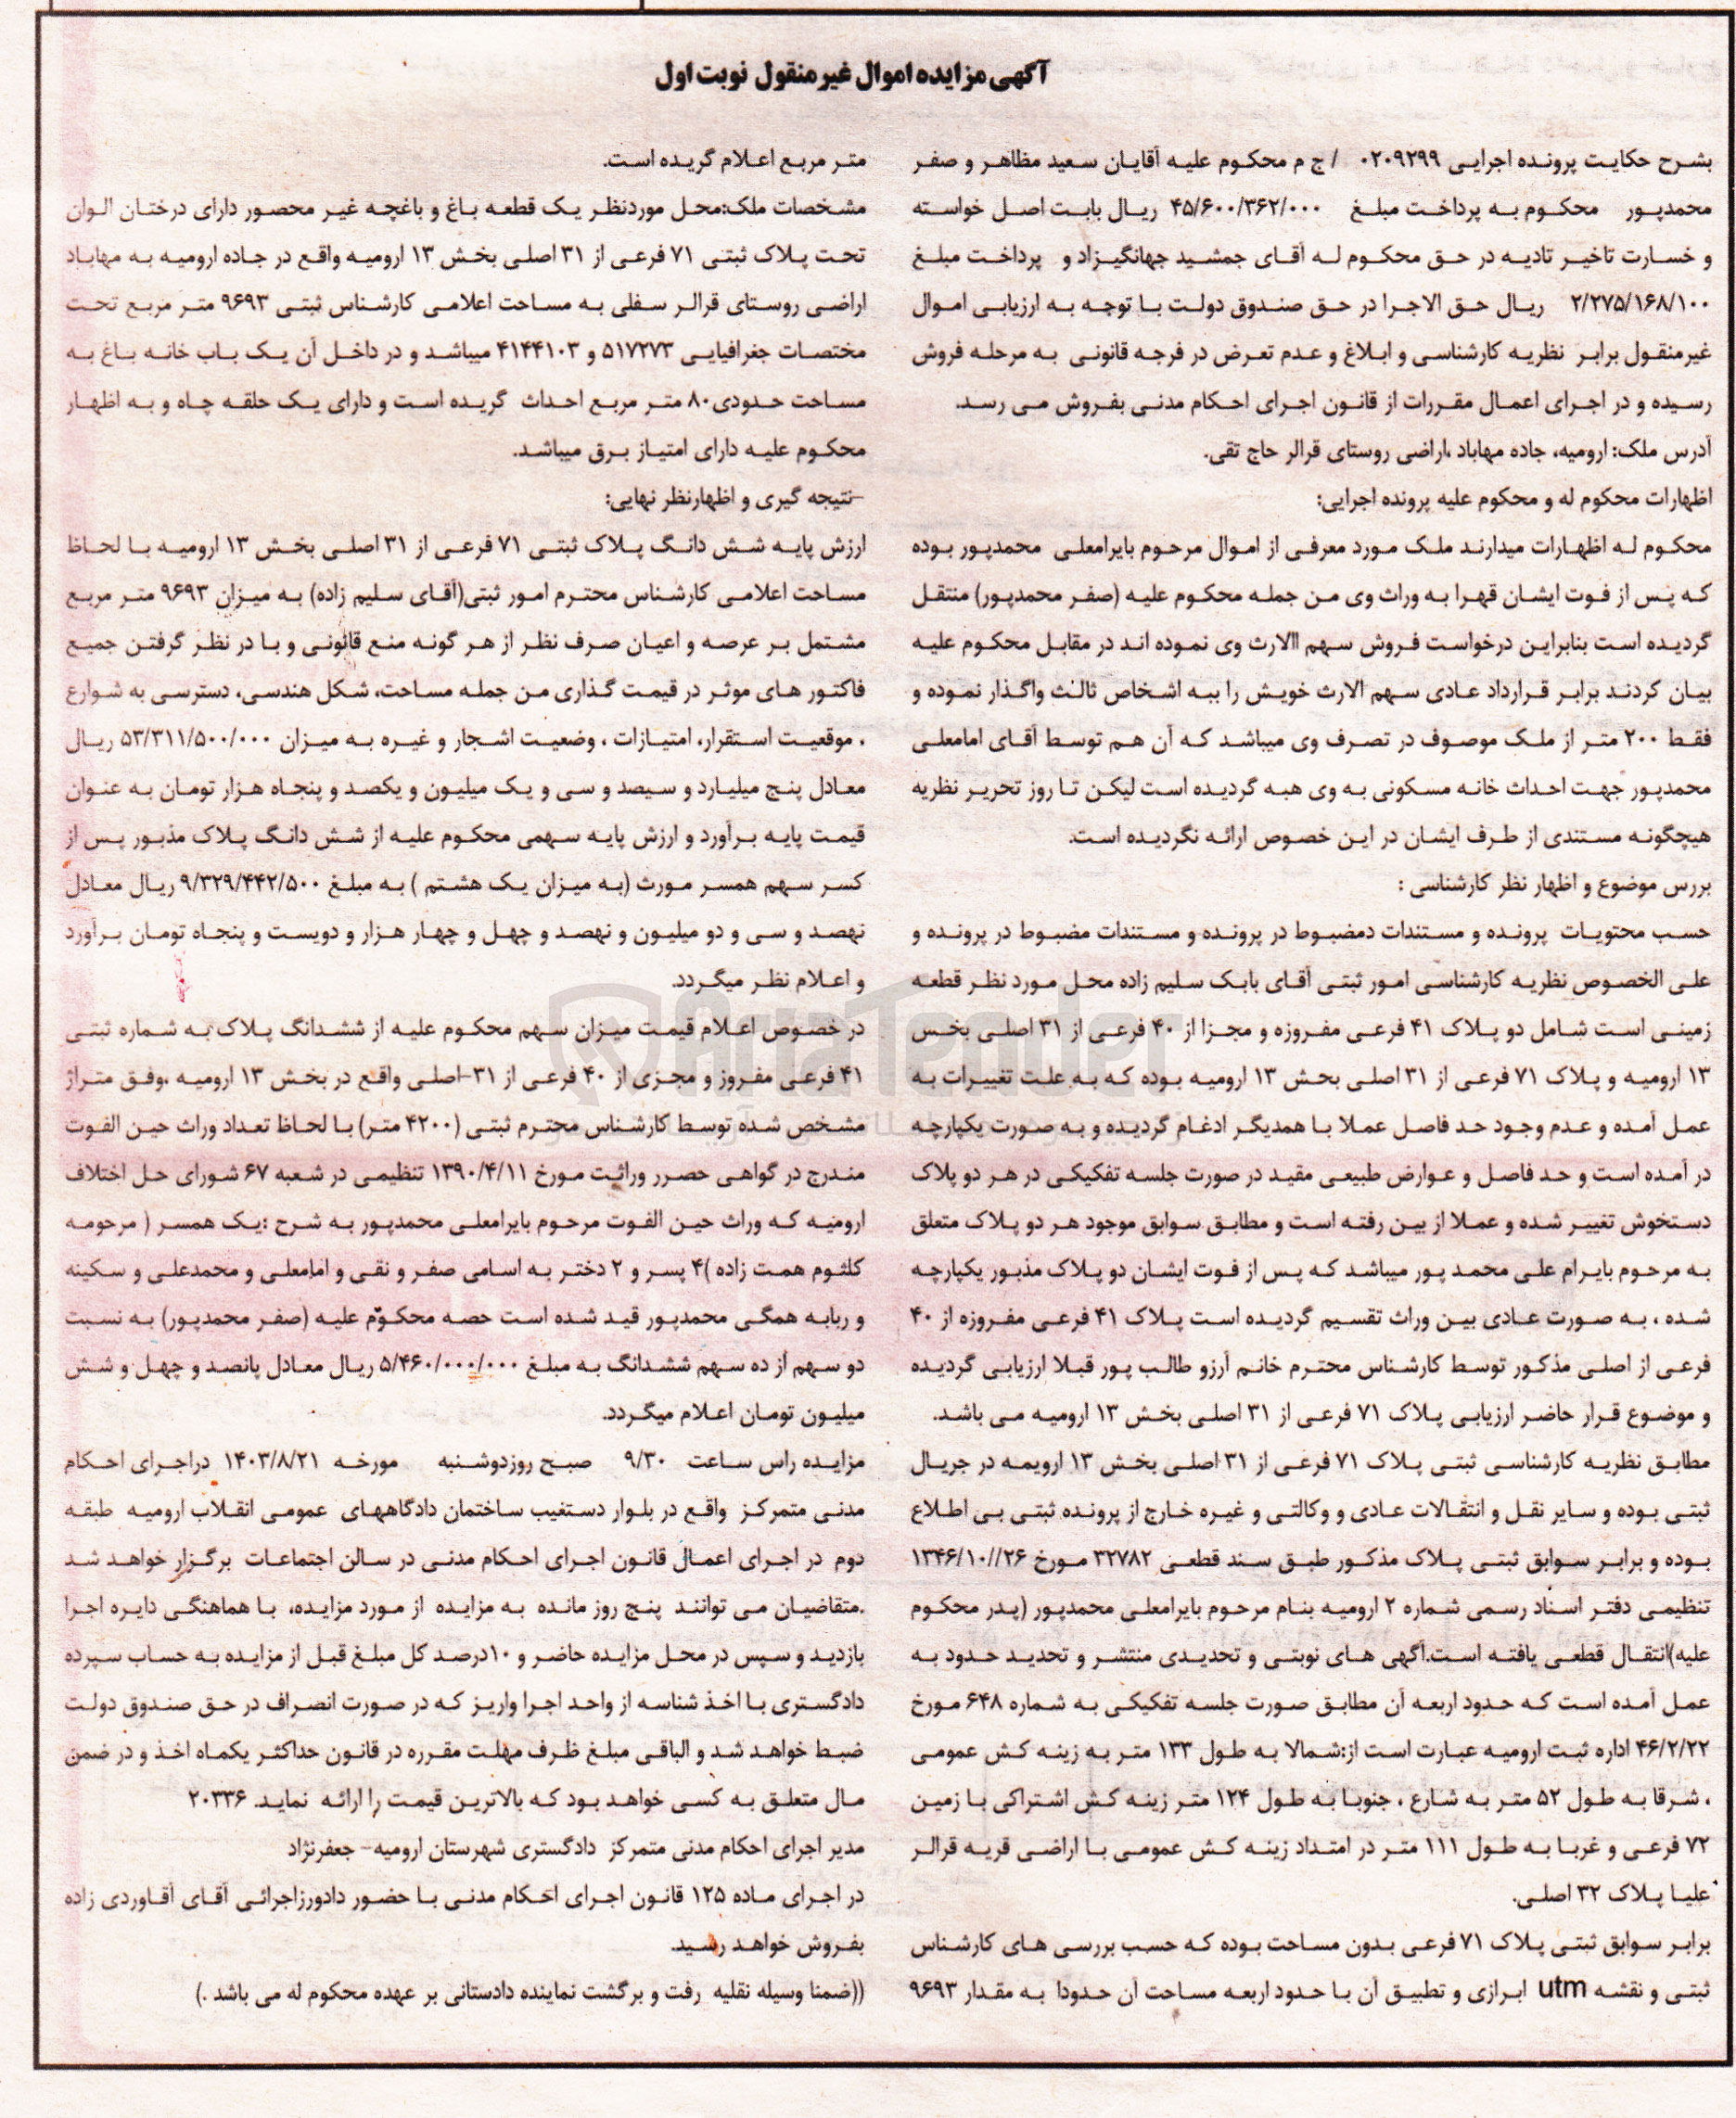 آگهی مزایده اموال غیر منقول نوبت اول
بشرح حکایت پرونده اجرایی ۰۲۰۹۲۹۹ / ج م محکوم علیه آقایان سعید مظاهر و صفر
محمدپور محکوم به پرداخت مبلغ ۴۵/۶۰۰/۳۶۲/۰۰۰ ریال بابت اصل خواسته
و خسارت تاخیر تادیه در حق محکوم له آقای جمشید جهانگیزاد و پرداخت مبلغ
۲/۲۷۵/۱۶۸/۱۰۰ ریال حق الاجرا در حق صندوق دولت با توجه به ارزیابی اموال
غیرمنقول برابر نظریه کارشناسی و ابلاغ و عدم تعرض در فرجه قانونی به مرحله فروش
رسیده و در اجرای اعمال مقررات از قانون اجرای احکام مدنی بفروش می رسد.
آدرس ملک: ارومیه، جاده مهاباد ،اراضی روستای قرالر حاج تقی.
اظهارات محکوم له و محکوم علیه پرونده اجرایی:
محکوم له اظهارات میدارند ملک مورد معرفی از اموال مرحوم بایرامعلی محمدپور بوده
که پس از فوت ایشان قهرا به وراث وی من جمله محکوم علیه (صفر محمدپور) منتقل
گردیده است بنابراین درخواست فروش سهم االارث وی نموده اند در مقابل محکوم علیه
بیان کردند برابر قرارداد عادی سهم الارث خویش را ببه اشخاص ثالث واگذار نموده و
فقط ۲۰۰ متر از ملک موصوف در تصرف وی میباشد که آن هم توسط آقای امامعلی
محمدپور جهت احداث خانه مسکونی به وی هبه گردیده است لیکن تا روز تحریر نظریه
هیچگونه مستندی از طرف ایشان در این خصوص ارائه نگردیده است.
بررس موضوع و اظهار نظر کارشناسی :
حسب محتویات پرونده و مستندات دمضبوط در پرونده و مستندات مضبوط در پرونده و
علی الخصوص نظریه کارشناسی امور ثبتی آقای بابک سلیم زاده محل مورد نظر قطعه
زمینی است شامل دو پلاک ۴۱ فرعی مفروزه و مجزا از ۴۰ فرعی از ۳۱ اصلی بخس
۱۳ ارومیه و پلاک ۷۱ فرعی از ۳۱ اصلی بحش ۱۳ ارومیه بوده که به علت تغییرات به
عمل آمده و عدم وجود حد فاصل عملا با همدیگر ادغام گردیده و به صورت یکپارچه
در آمده است و حد فاصل و عوارض طبیعی مقید در صورت جلسه تفکیکی در هر دو پلاک
دستخوش تغییر شده و عملا از بین رفته است و مطابق سوابق موجود هر دو پلاک متعلق
به مرحوم بایرام علی محمد پور میباشد که پس از فوت ایشان دو پلاک مذبور یکپارچه
شده ، به صورت عادی بین وراث تقسیم گردیده است پلاک ۴۱ فرعی مفروزه از ۴۰
فرعی از اصلی مذکور توسط کارشناس محترم خانم آرزو طالب پور قبلا ارزیابی گردیده
و موضوع قرار حاضر ارزیابی پلاک ۷۱ فرعی از ۳۱ اصلی بخش ۱۳ ارومیه می باشد.
مطابق نظریه کارشناسی ثبتی پلاک ۷۱ فرعی از ۳۱ اصلی بخش ۱۳ ارویمه در جریال
ثبتی بوده و سایر نقل و انتقالات عادی و وکالتی و غیره خارج از پرونده ثبتی بی اطلاع
بوده و برابر سوابق ثبتی پلاک مذکور طبق سند قطعی ۳۲۷۸۲ مورخ ۱۳۴۶/۱۰//۲۶
تنظیمی دفتر اسناد رسمی شماره ۲ ارومیه بنام مرحوم بایرامعلی محمدپور (پدر محکوم
علیه)انتقال قطعی یافته است.آگهی های نوبتی و تحدیدی منتشر و تحدید حدود به
عمل آمده است که حدود اربعه آن مطابق صورت جلسه تفکیکی به شماره ۶۴۸ مورخ
۴۶/۲/۲۲ اداره ثبت ارومیه عبارت است از:شمالا به طول ۱۳۳ متر به زینه کش عمومی
، شرقا به طول ۵۲ متر به شارع ، جنوبا به طول ۱۲۴ متر زینه کش اشتراکی با زمین
۷۲ فرعی و غربا به طول ۱۱۱ متر در امتداد زینه کش عمومی با اراضی قریه قرالر
علیا پلاک ۳۲ اصلی.
برابر سوابق ثبتی پلاک ۷۱ فرعی بدون مساحت بوده که حسب بررسی های کارشناس
ثبتی و نقشه utm ابرازی و تطبیق آن با حدود اربعه مساحت آن حدودا به مقدار ۹۶۹۳
متر مربع اعلام گریده است.
مشخصات ملک:محل موردنظر یک قطعه باغ و باغچه غیر محصور دارای درختان الوان
تحت پلاک ثبتی ۷۱ فرعی از ۳۱ اصلی بخش ۱۳ ارومیه واقع در جاده ارومیه به مهاباد
اراضی روستای قرالر سفلی به مساحت اعلامی کارشناس ثبتی ۹۶۹۳ متر مربع تحت
مختصات جغرافیایی ۵۱۷۲۷۳ و ۴۱۴۴۱۰۳ میباشد و در داخل آن یک باب خانه باغ به
مساحت حدودی۸۰ متر مربع احداث گریده است و دارای یک حلقه چاه و به اظهار
محکوم علیه دارای امتیاز برق میباشد.
-نتیجه گیری و اظهارنظر نهایی:
ارزش پایه شش دانگ پلاک ثبتی ۷۱ فرعی از ۳۱ اصلی بخش ۱۳ ارومیه با لحاظ
مساحت اعلامی کارشناس محترم امور ثبتی(آقای سلیم زاده) به میزان ۹۶۹۳ متر مربع
مشتمل بر عرصه و اعیان صرف نظر از هر گونه منع قانونی و با در نظر گرفتن جمیع
فاکتور های موثر در قیمت گذاری من جمله مساحت، شکل هندسی، دسترسی به شوارع
، موقعیت استقرار، امتیازات ، وضعیت اشجار و غیره به میزان ۵۳/۳۱۱/۵۰۰/۰۰۰ ریال
معادل پنج میلیارد و سیصد و سی و یک میلیون و یکصد و پنجاه هزار تومان به عنوان
قیمت پایه برآورد و ارزش پایه سهمی محکوم علیه از شش دانگ پلاک مذبور پس از
کسر سهم همسر مورث (به میزان یک هشتم ) به مبلغ ۹/۳۲۹/۴۴۲/۵۰۰ ریال معادل
نهصد و سی و دو میلیون و نهصد و چهل و چهار هزار و دویست و پنجاه تومان برآورد
و اعلام نظر میگردد.
در خصوص اعلام قیمت میزان سهم محکوم علیه از ششدانگ پلاک به شماره ثبتی
۴۱ فرعی مفروز و مجزی از ۴۰ فرعی از ۳۱-اصلی واقع در بخش ۱۳ ارومیه ،وفق متراژ
مشخص شده توسط کارشناس محترم ثبتی (۴۲۰۰ متر) با لحاظ تعداد وراث حین الفوت
مندرج در گواهی حصرر وراثت مورخ ۱۳۹۰/۴/۱۱ تنظیمی در شعبه ۶۷ شورای حل اختلاف
ارومیه که وراث حین الفوت مرحوم بایرامعلی محمدپور به شرح :یک همسر ( مرحومه
کلثوم همت زاده )۴ پسر و ۲ دختر به اسامی صفر و نقی و امامعلی و محمدعلی و سکینه
و ربابه همگی محمدپور قید شده است حصه محکوم علیه (صفر محمدپور) به نسبت
دو سهم از ده سهم ششدانگ به مبلغ ۵/۴۶۰/۰۰۰/۰۰۰ ریال معادل پانصد و چهل و شش
میلیون تومان اعلام میگردد.
مزایده راس ساعت ۹/۳۰ صبح روزدوشنبه مورخه ۱۴۰۳/۸/۲۱ دراجرای احکام
مدنی متمرکز واقع در بلوار دستغیب ساختمان دادگاههای عمومی انقلاب ارومیه طبقه
دوم در اجرای اعمال قانون اجرای احکام مدنی در سالن اجتماعات برگزار خواهد شد
.متقاضیان می توانند پنج روز مانده به مزایده از مورد مزایده، با هماهنگی دایره اجرا
بازدید و سپس در محل مزایده حاضر و ۱۰درصد کل مبلغ قبل از مزایده به حساب سپرده
دادگستری با اخذ شناسه از واحد اجرا واریز که در صورت انصراف در حق صندوق دولت
ضبط خواهد شد و الباقی مبلغ ظرف مهلت مقرره در قانون حداکثر یکماه اخذ و در ضمن
مال متعلق به کسی خواهد بود که بالاترین قیمت را ارائه نماید. ۲۰۳۳۶
مدیر اجرای احکام مدنی متمرکز دادگستری شهرستان ارومیه- جعفرنژاد
در اجرای ماده ۱۲۵ قانون اجرای احکام مدنی با حضور دادورزاجرائی آقای آقاوردی زاده
بفروش خواهد رسید.
((ضمنا وسیله نقلیه رفت و برگشت نماینده دادستانی بر عهده محکوم له می باشد .)
AriaTender